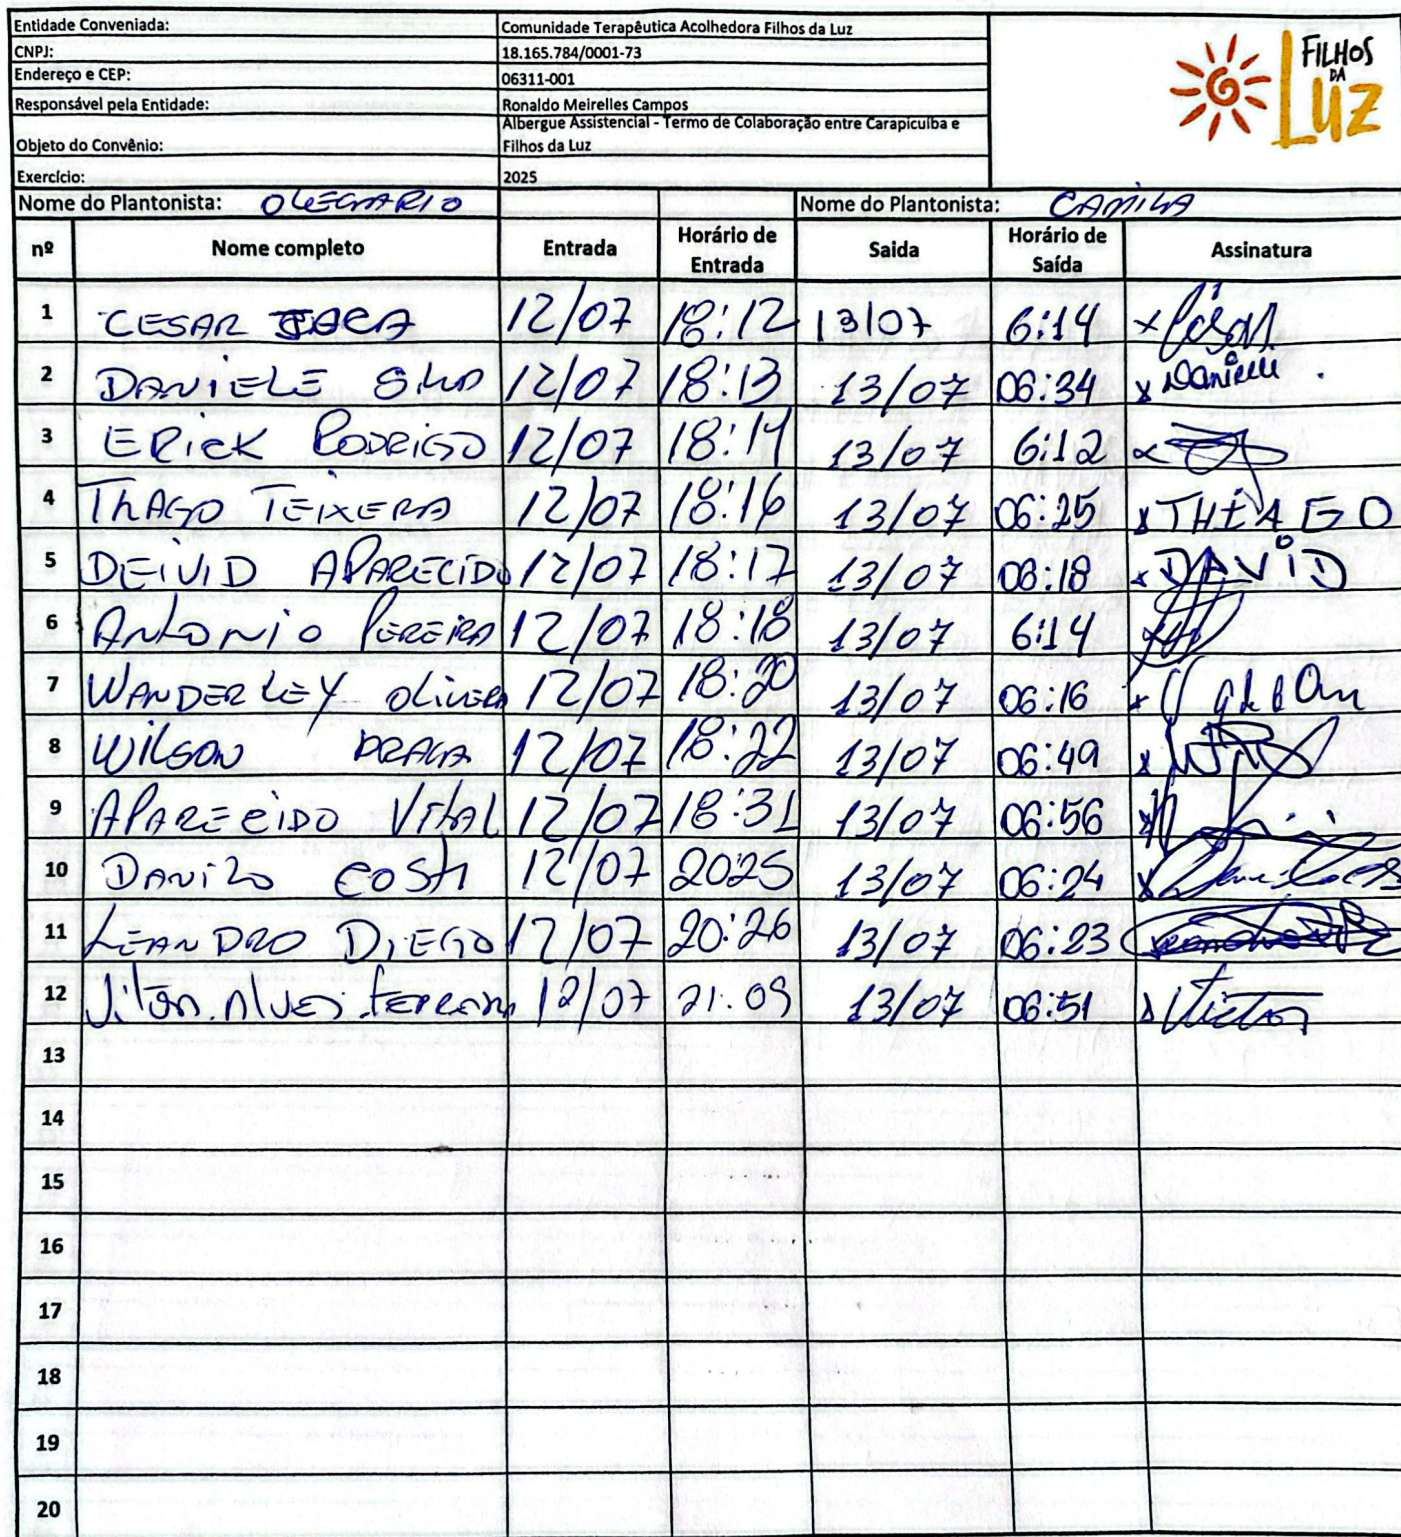 Entidade Conveniada: Comunidade Terapêutica Acolhedora Filhos da Luz
CNPJ: 18.165.784/0001-73
Endereço e CEP: 06311-001
Responsável pela Entidade: Ronaldo Meirelles Campos
Objeto do Convênio: Albergue Assistencial - Termo de Colaboração entre Carapicuíba e
Filhos da Luz
Exercício: 2025
FILHOS
DA
LUZ
Nome do Plantonista: OLEGARIO Nome do Plantonista: CAMILA
nº Nome completo Entrada Horário de Entrada Saida Horário de Saída Assinatura
1 CESAR 12/07 18:12 13/07 6:14 x Cesar
2 DANIELE 12/07 18:13 13/07 06:34 x Danielle
3 ERICK RODRIGO 12/07 18:14 13/07 6:12
4 THAGO TEIXERA 12/07 18:16 13/07 06:25 x THIAGO
5 DEIVID APARECIDO 12/07 18:17 13/07 06:18 x DAVID
6 ANTONIO PEREIRA 12/07 18:18 13/07 6:14
7 WANDERLEY OLIVERA 12/07 18:20 13/07 06:16
8 WILSON 12/07 18:22 13/07 06:49
9 APARECIDO VITAL 12/07 18:31 13/07 06:56
10 DANILO COSTA 12/07 2025 13/07 06:24
11 LEANDRO DIEGO 12/07 20:26 13/07 06:23
12 12/07 21:09 13/07 06:51
13
14
15
16
17
18
19
20